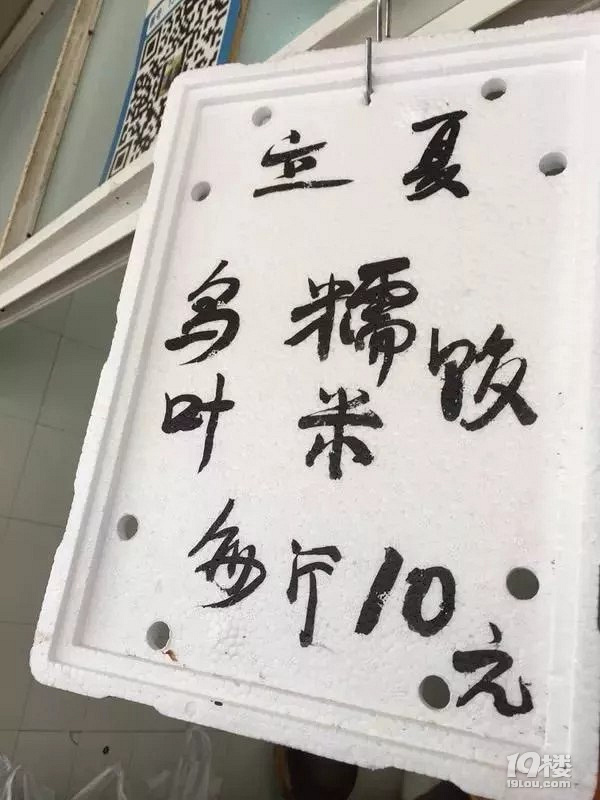 立夏
乌叶
糯米
饭
每斤10元
19楼
19lou.com